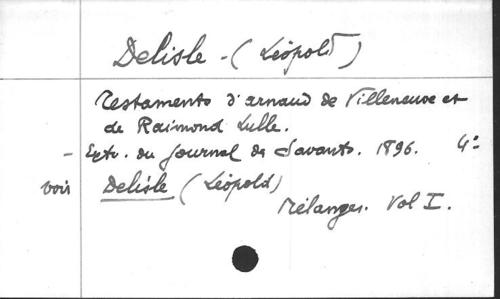 Delisle - (Léopold)
Testaments d'arnaud de Villeneuve et
de Raimond Lulle.
- Extr. du Journal des Savants. 1896. 4º
voir Delisle (Léopold)
Mélanges. Vol I.